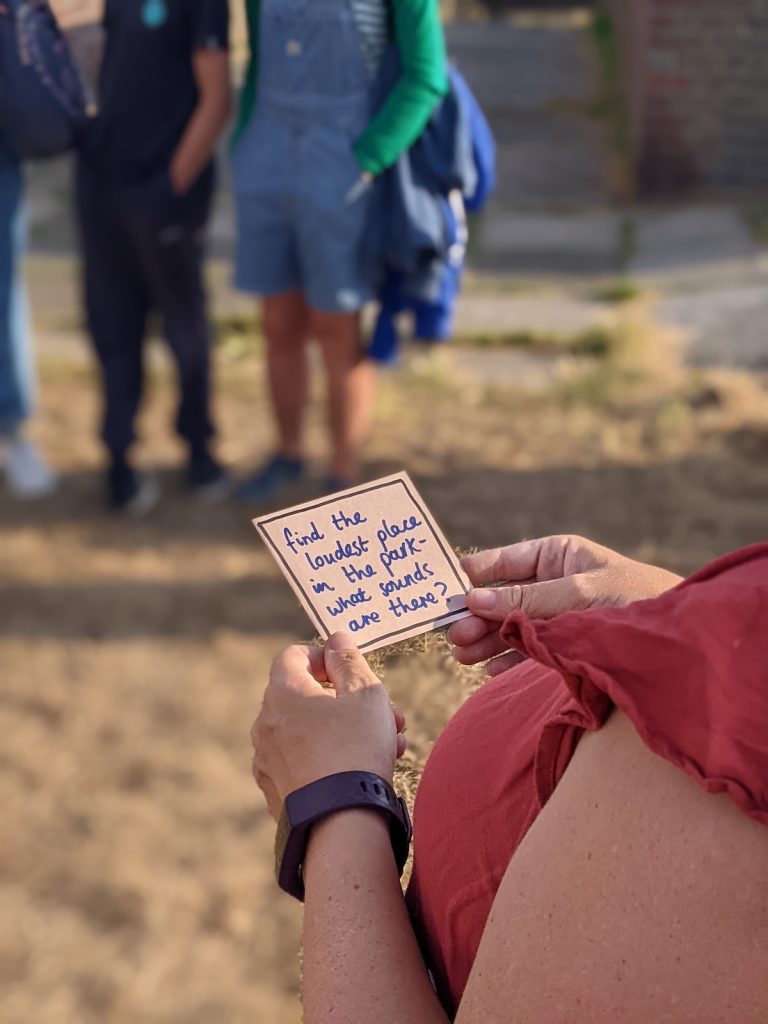 find the
loudest place
in the park-
what sounds
are there?